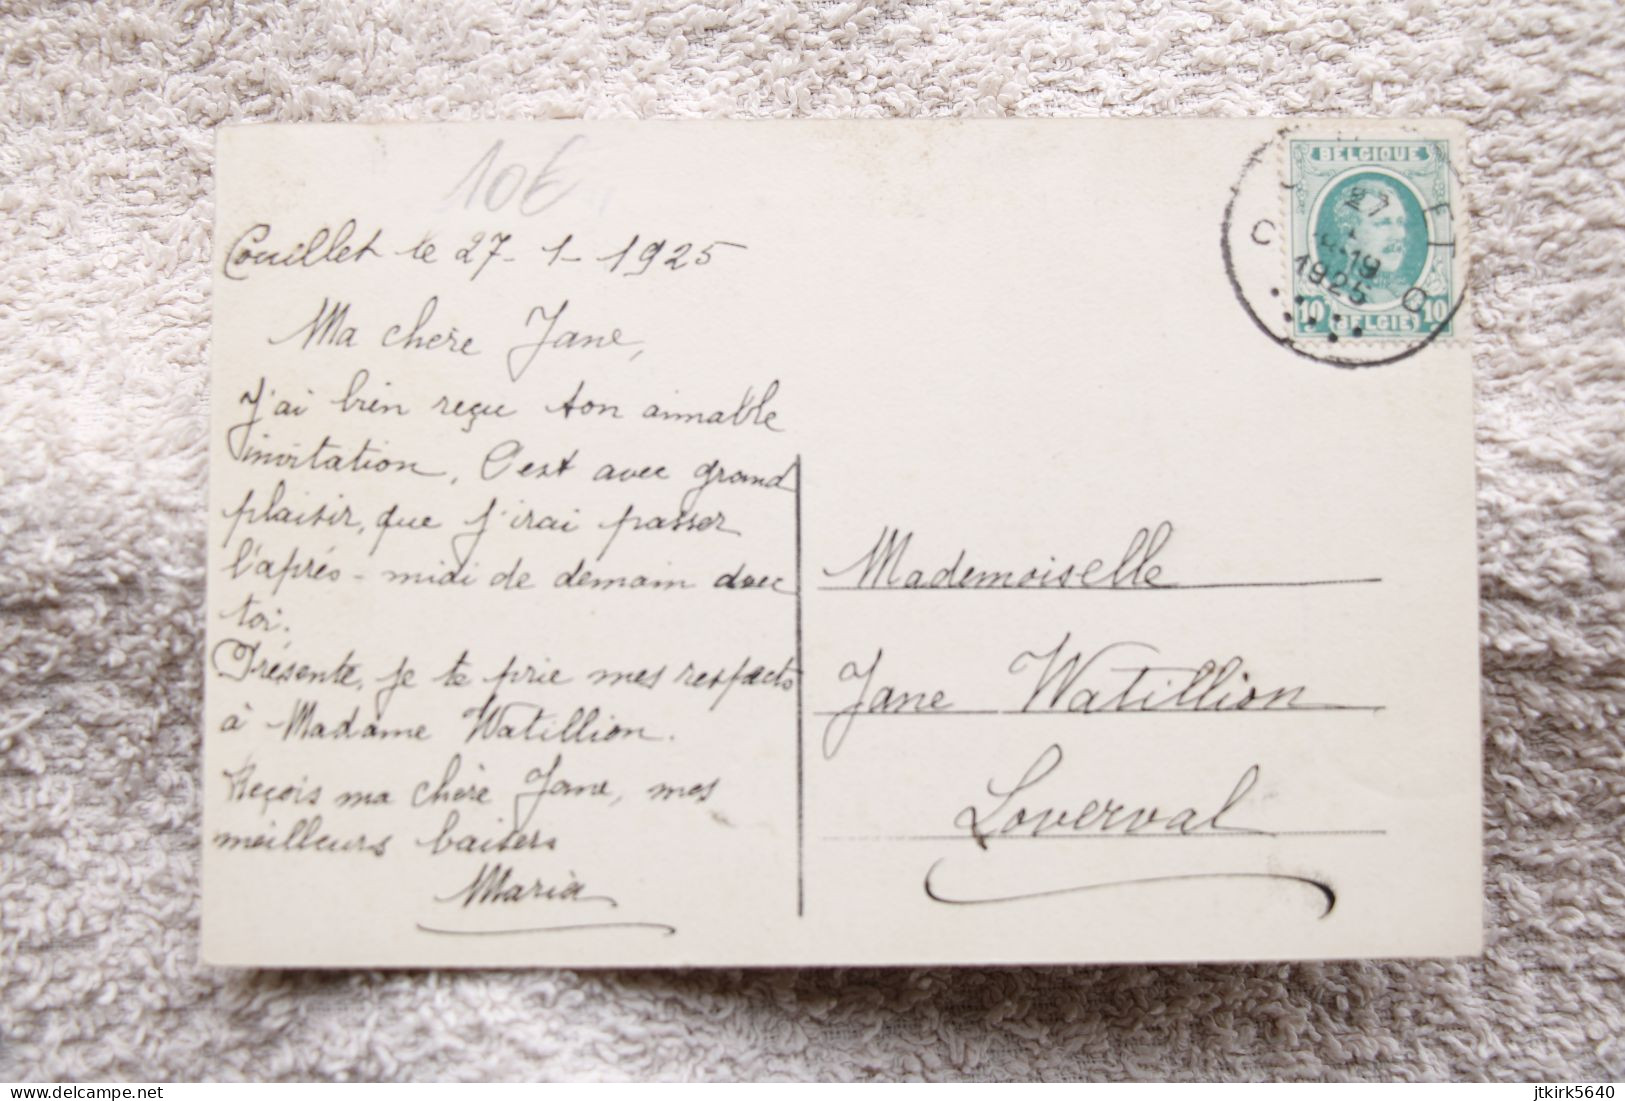 10€
Couillet le 27-1-1925
Ma chère Jane,
J'ai bien reçu ton aimable
invitation. C'est avec grand
plaisir, que j'irai passer
l'après-midi de demain avec
toi.
Présente, je te prie mes respects
à Madame Watillion.
Reçois ma chère Jane, mes
meilleurs baisers
Maria
BELGIQUE
27
19
1925
C C
10 BELGIË 10
Mademoiselle
Jane Watillion
Loverval
delcampe.net
jtkirk5640